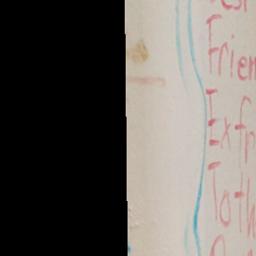 Frien
Exfr
Toth